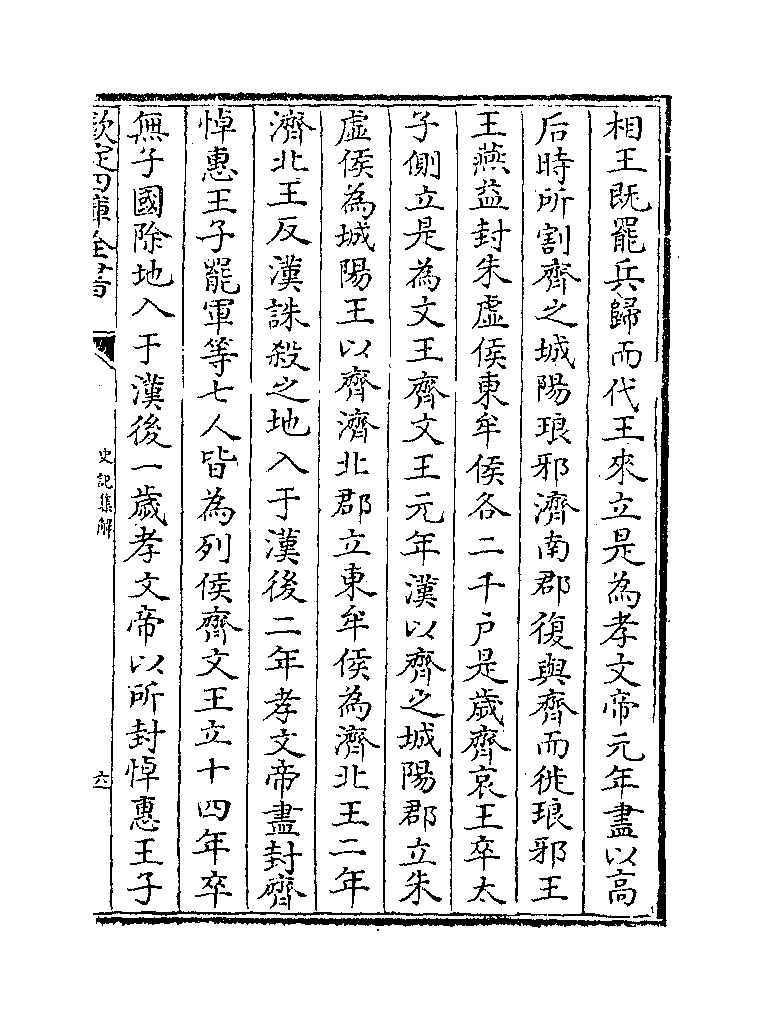 相王既罷兵歸而代王來立是為孝文帝元年盡以髙
后時所割齊之城陽琅邪濟南郡復與齊而徙琅邪王
王燕益封朱虛侯東牟侯各二千戶是歲齊哀王卒太
子側立是為文王齊文王元年漢以齊之城陽郡立朱
虛侯為城陽王以齊濟北郡立東牟侯為濟北王二年
濟北王反漢誅殺之地入于漢後二年孝文帝盡封齊
悼惠王子罷軍等七人皆為列侯齊文王立十四年卒
無子國除地入于漢後一歲孝文帝以所封悼惠王子
欽定四庫全書
史記集解
六